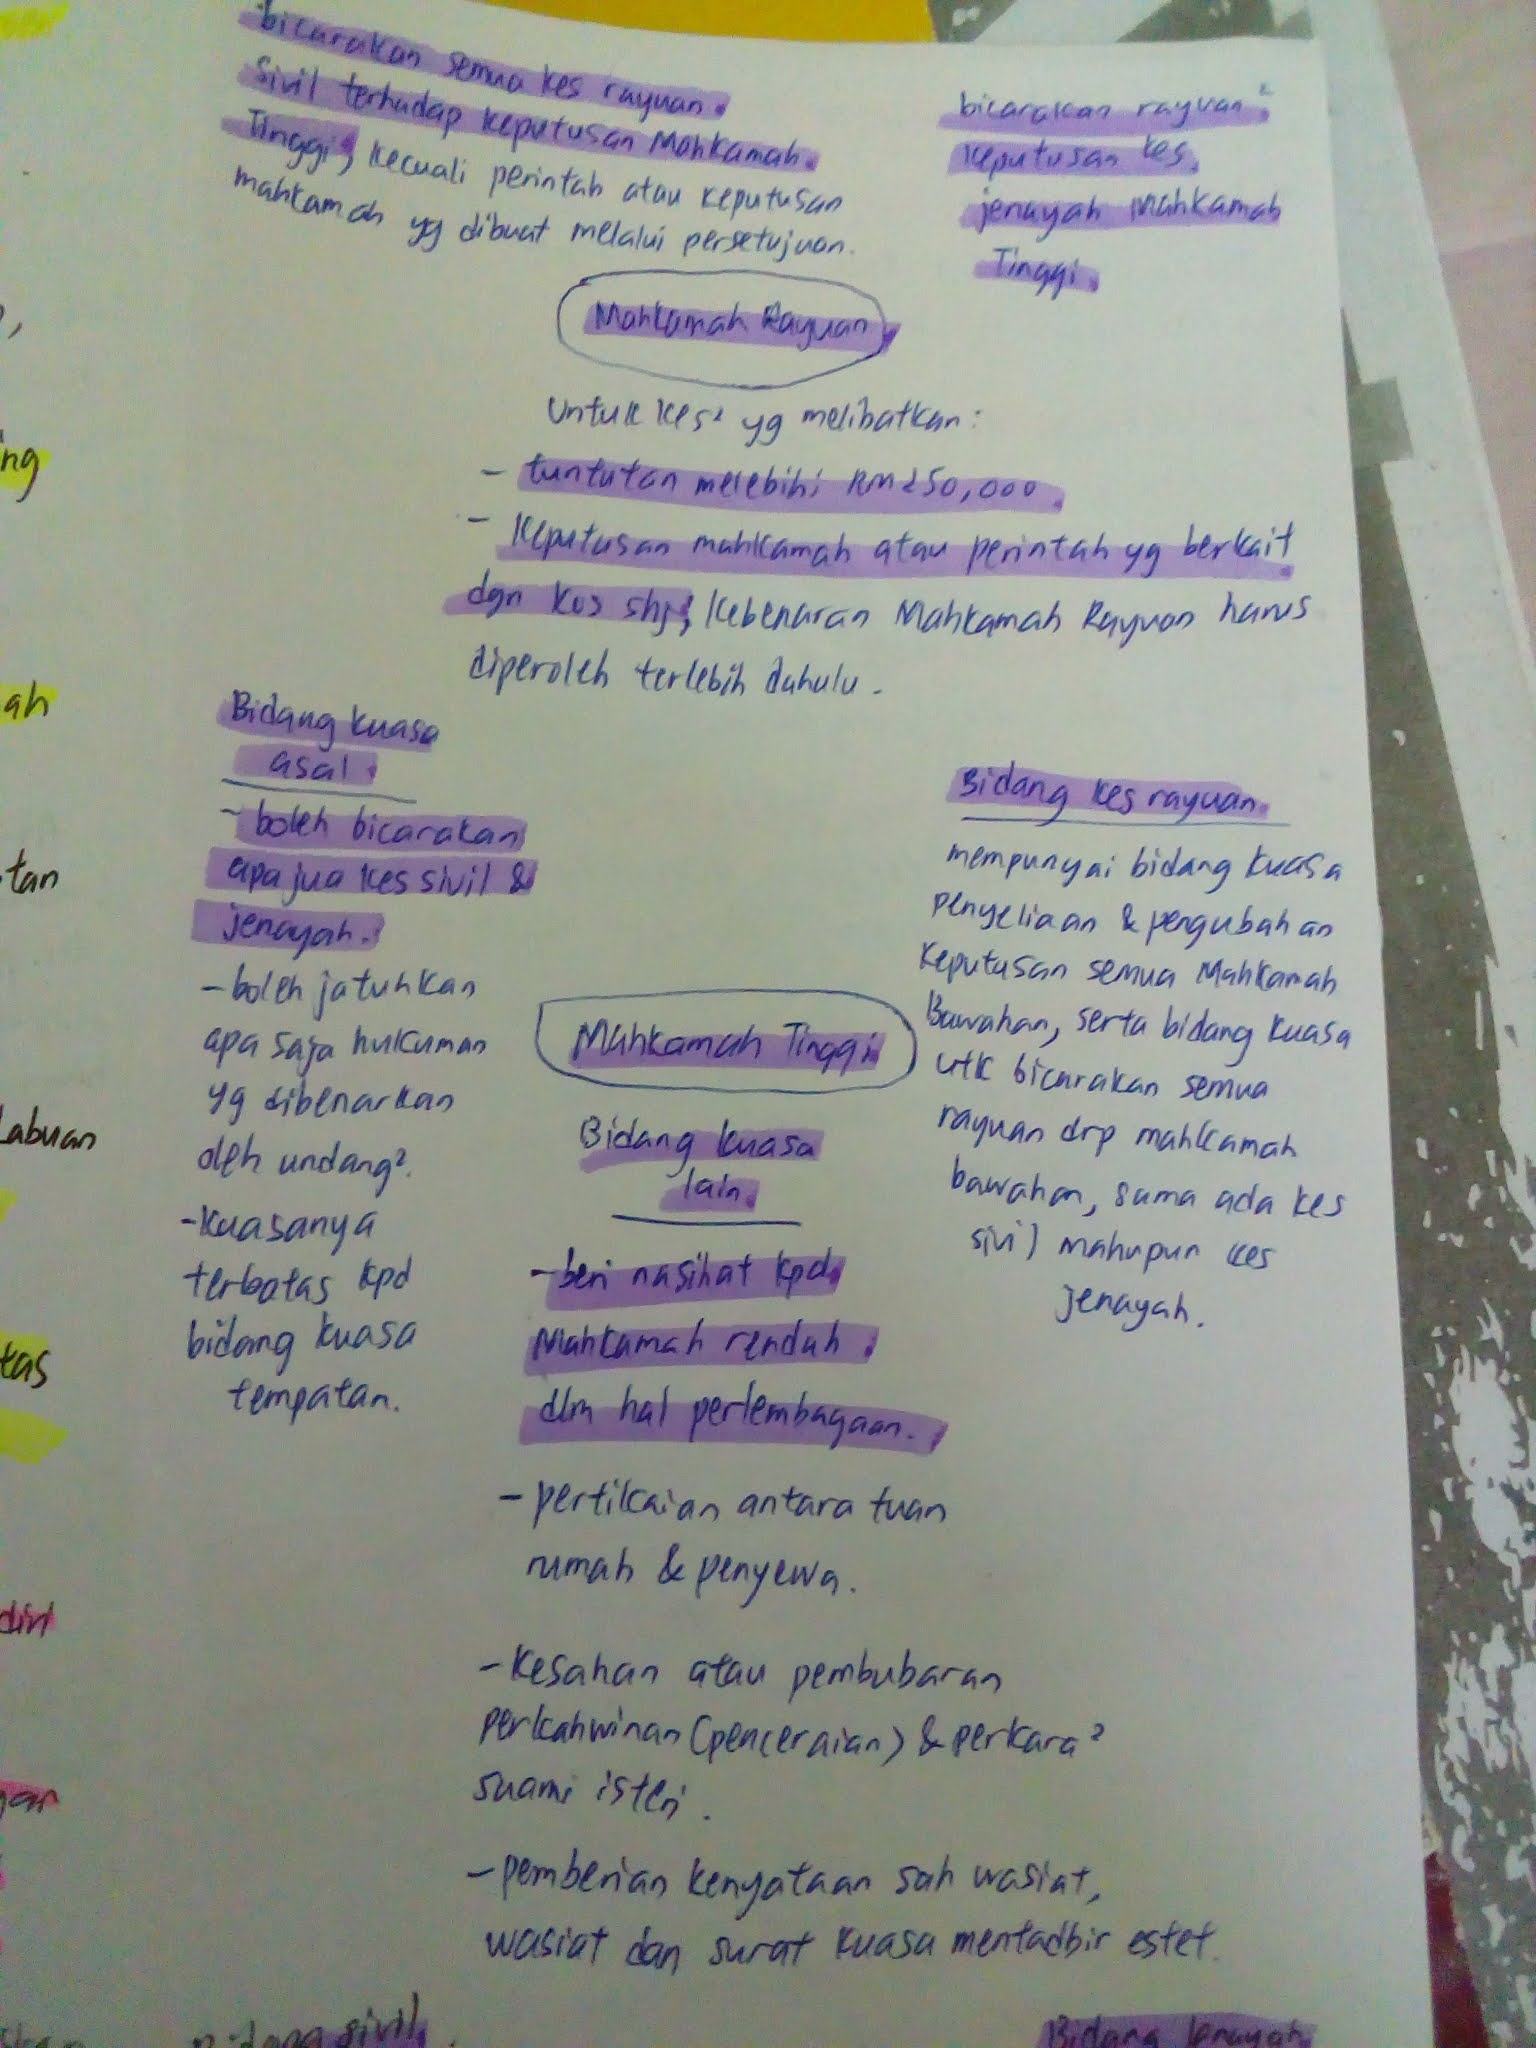 bicarakan semua kes rayuan
sivil terhadap keputusan Mahkamah
Tinggi, kecuali perintah atau keputusan
mahkamah yg dibuat melalui persetujuan.
bicarakan rayuan²
keputusan kes
jenayah Mahkamah
Tinggi.
Mahkamah Rayuan
Untuk kes² yg melibatkan:
- tuntutan melebihi RM250,000.
- Keputusan mahkamah atau perintah yg berkait
dgn kos shj, kebenaran Mahkamah Rayuan harus
diperoleh terlebih dahulu.
Bidang kuasa
asal.
- boleh bicarakan
apa jua kes sivil &
jenayah.
- boleh jatuhkan
apa saja hukuman
yg dibenarkan
oleh undang².
- kuasanya
terbatas kpd
bidang kuasa
tempatan.
Mahkamah Tinggi
Bidang kuasa
lain.
- beri nasihat kpd
Mahkamah rendah
dlm hal perlembagaan.
- pertikaian antara tuan
rumah & penyewa.
- Kesahan atau pembubaran
perkahwinan (penceraian) & perkara²
suami isteri.
- pemberian kenyataan sah wasiat,
wasiat dan surat kuasa mentadbir estet.
Bidang kes rayuan
mempunyai bidang kuasa
penyeliaan & pengubahan
keputusan semua Mahkamah
Bawahan, serta bidang kuasa
utk bicarakan semua
rayuan drp mahkamah
bawahan, sama ada kes
sivil mahupun kes
jenayah.
Bidang sivil
Bidang Jenayah
ng
ah
tan
Labuan
tas
diri
gar